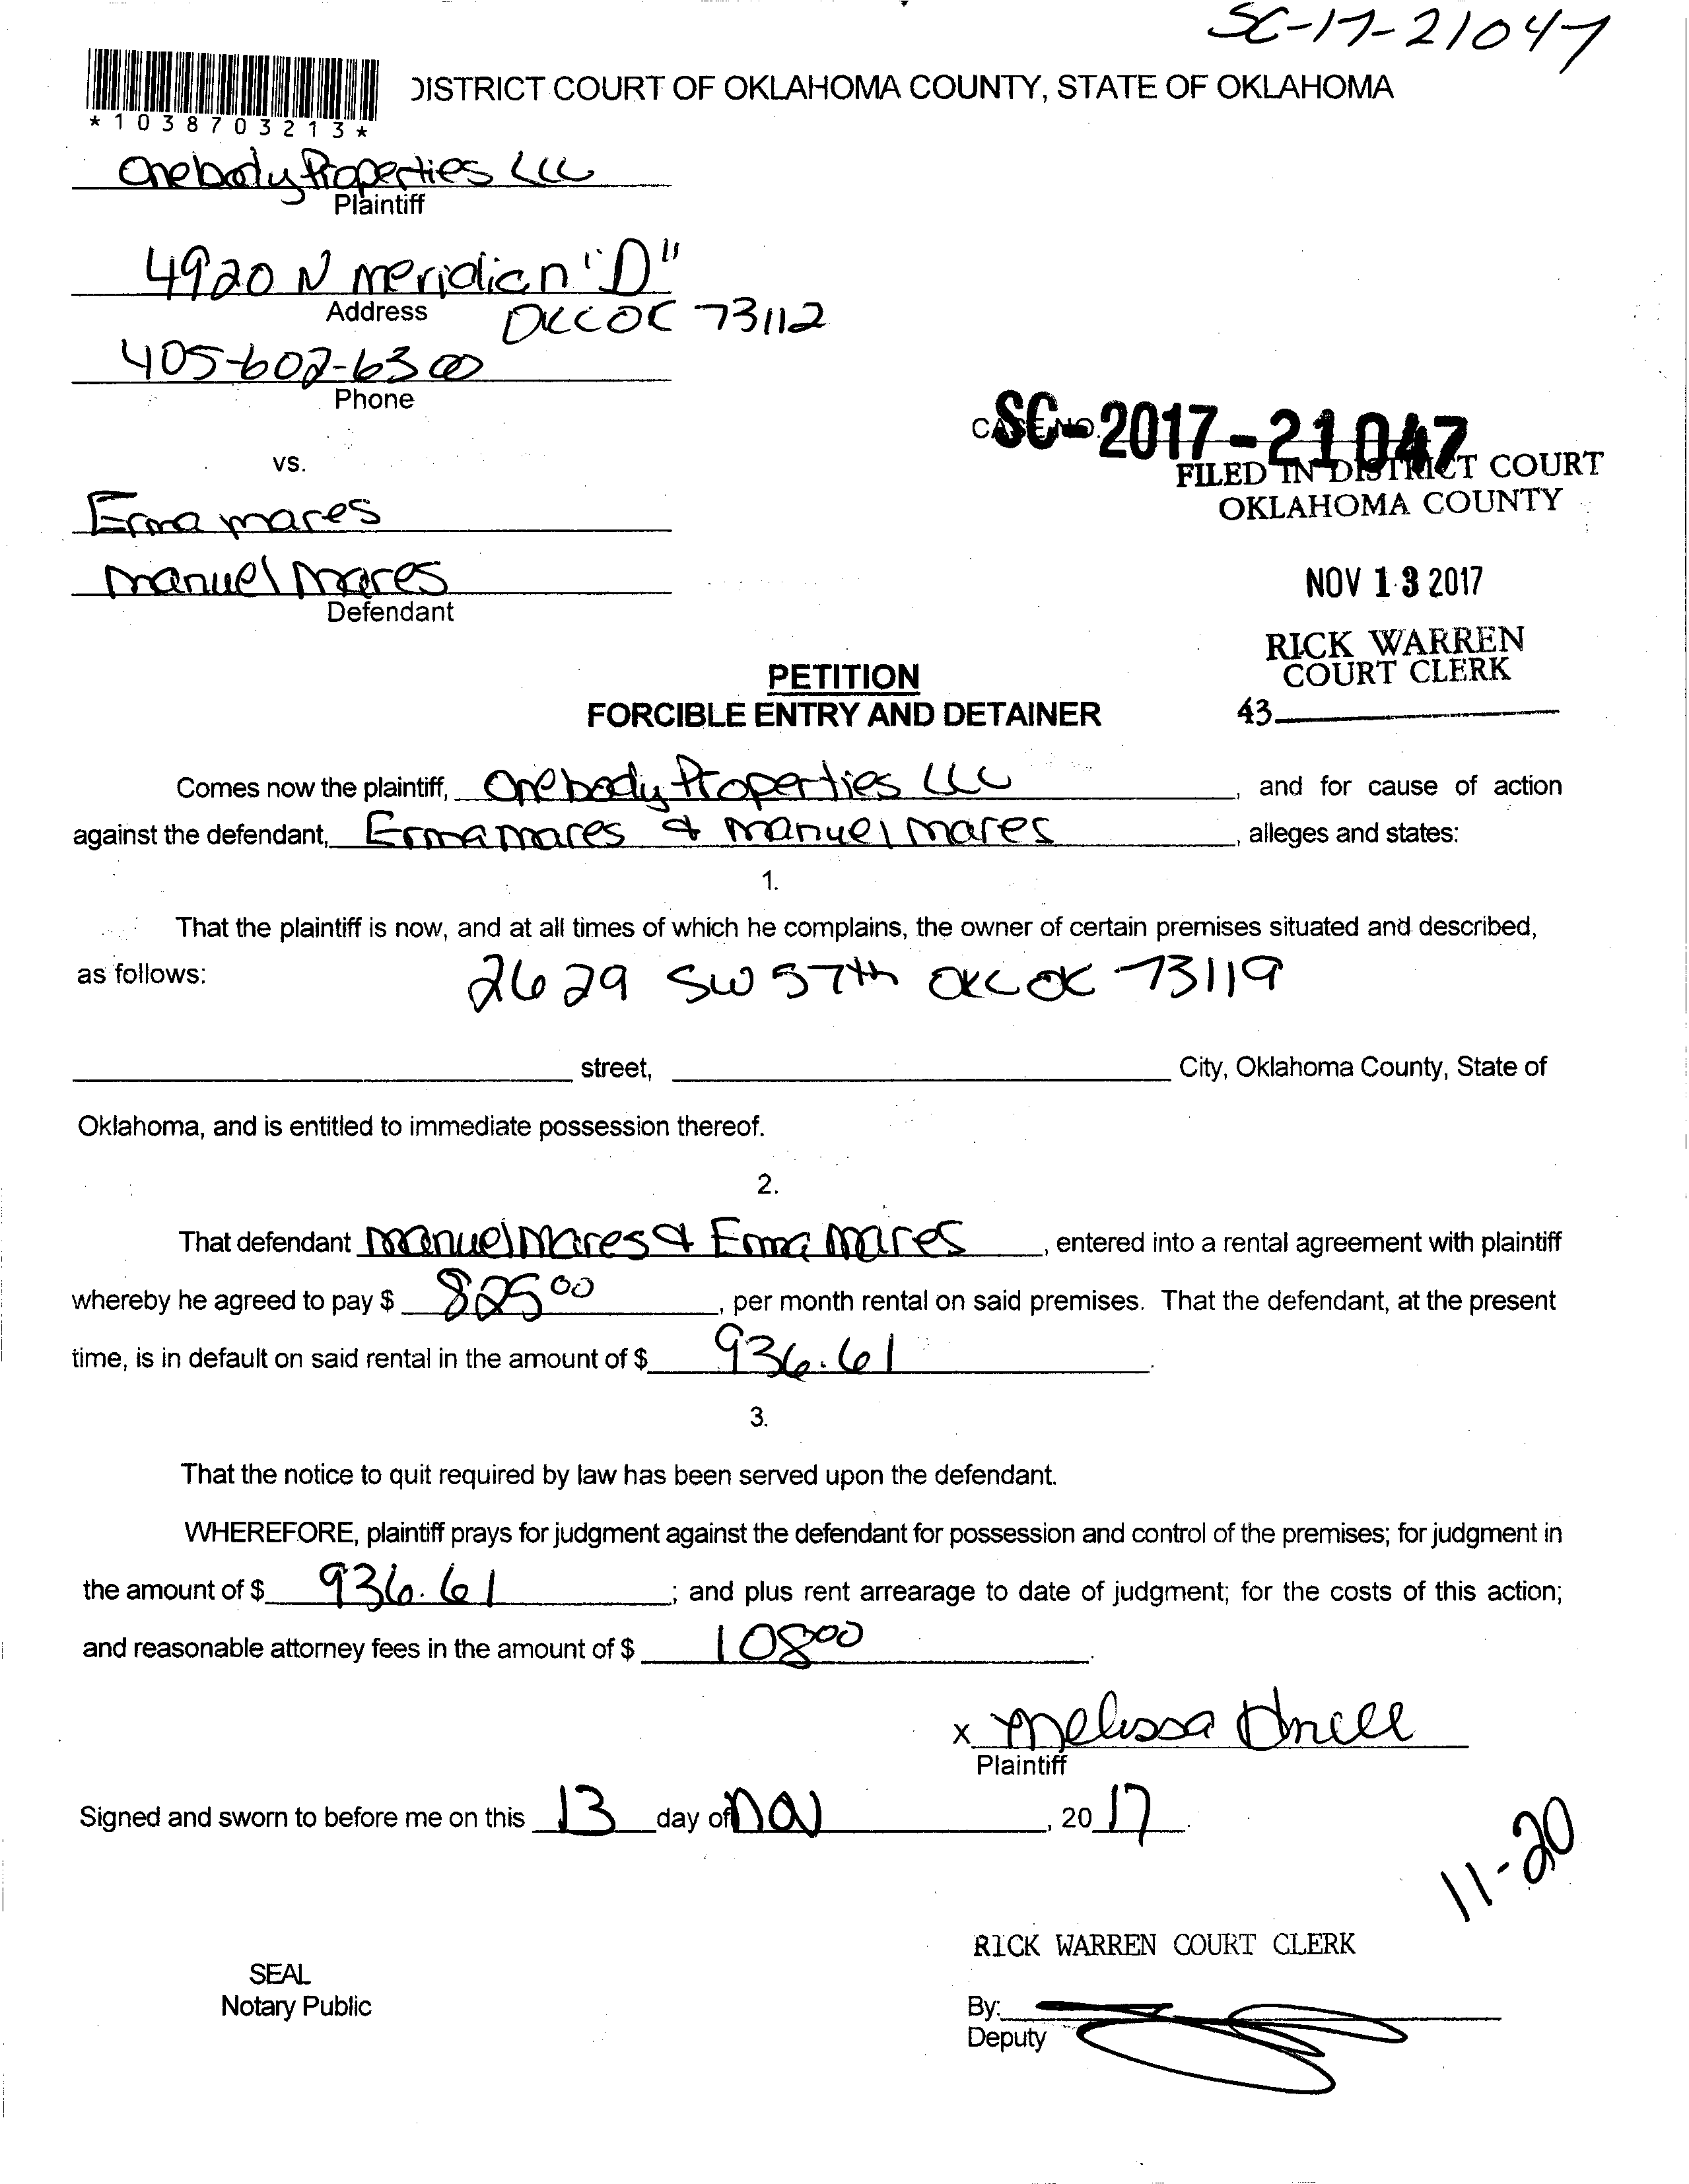 SC-17-21047
*1038703213*
DISTRICT COURT OF OKLAHOMA COUNTY, STATE OF OKLAHOMA
Onebody Properties LLC
Plaintiff
4920 N Meridian "D"
Address
OKC OK 73112
405-602-6300
Phone
CASE NO. SC-2017-21047
vs.
FILED IN DISTRICT COURT
OKLAHOMA COUNTY
Erma mares
Manuel Mares
Defendant
NOV 13 2017
RICK WARREN
COURT CLERK
43
PETITION
FORCIBLE ENTRY AND DETAINER
Comes now the plaintiff, Onebody Properties LLC, and for cause of action
against the defendant, Erma mares & Manuel Mares, alleges and states:
1.
That the plaintiff is now, and at all times of which he complains, the owner of certain premises situated and described,
as follows: 2629 SW 57th OKC OK 73119
street, City, Oklahoma County, State of
Oklahoma, and is entitled to immediate possession thereof.
2.
That defendant Manuel Mares & Erma Mares, entered into a rental agreement with plaintiff
whereby he agreed to pay $ 825 00, per month rental on said premises. That the defendant, at the present
time, is in default on said rental in the amount of $ 936.61.
3.
That the notice to quit required by law has been served upon the defendant.
WHEREFORE, plaintiff prays for judgment against the defendant for possession and control of the premises; for judgment in
the amount of $ 936.61; and plus rent arrearage to date of judgment; for the costs of this action;
and reasonable attorney fees in the amount of $ 108 00.
x Melissa
Plaintiff
Signed and sworn to before me on this 13 day of Nov, 20 17.
11-20
RICK WARREN COURT CLERK
SEAL
Notary Public
By:
Deputy